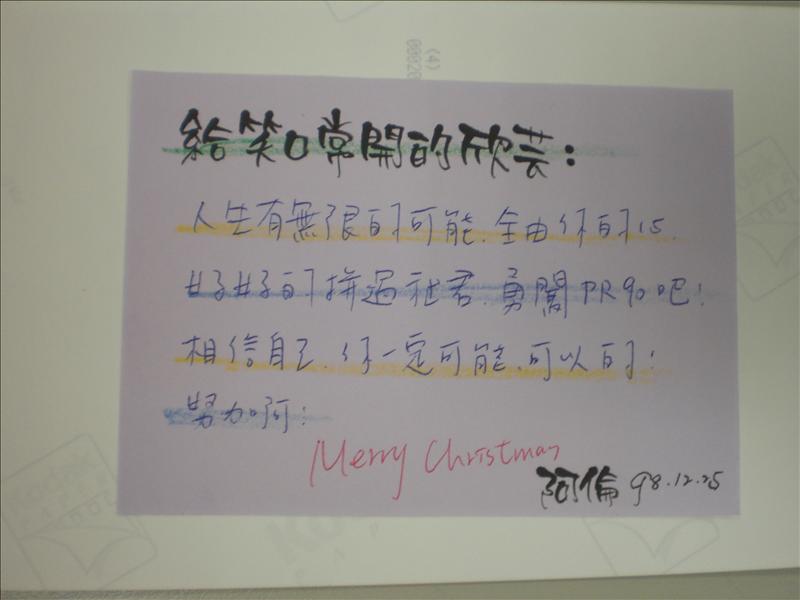 (4)
00020
給笑口常開的欣芸：
人生有無限的可能.全由你的心.
好好的拼過社君.勇闖PR90吧！
相信自己.你一定可能.可以的！
努力啊！
Merry Christmas
阿倫 98.12.25
Kodak